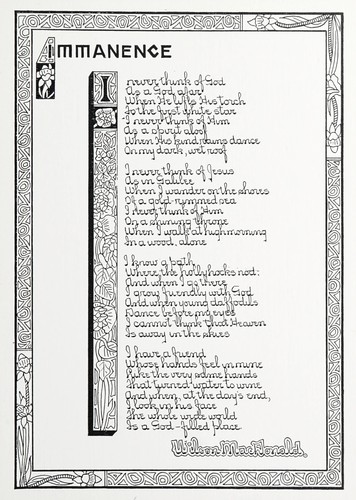 IMMANENCE
I never think of God
As a God afar
When He lifts His torch
To the first white star
I never think of Him
As a spirit aloof
When His kind rains dance
On my dark, wet roof
I never think of Jesus
As in Galilee
When I wander on the shores
Of a gold-rimmed sea
I never think of Him
On a shining throne
When I walk at high morning
In a wood, alone
I know a path
Where the hollyhocks nod:
And when I go there
I grow friendly with God
And when young daffodils
Dance before my eyes
I cannot think that Heaven
Is away in the skies
I have a friend
Whose hands feel in mine
Like the very same hands
That turned water to wine
And when, at the day's end,
I look in his face
The whole wide world
Is a God-filled place
Wilson MacDonald.